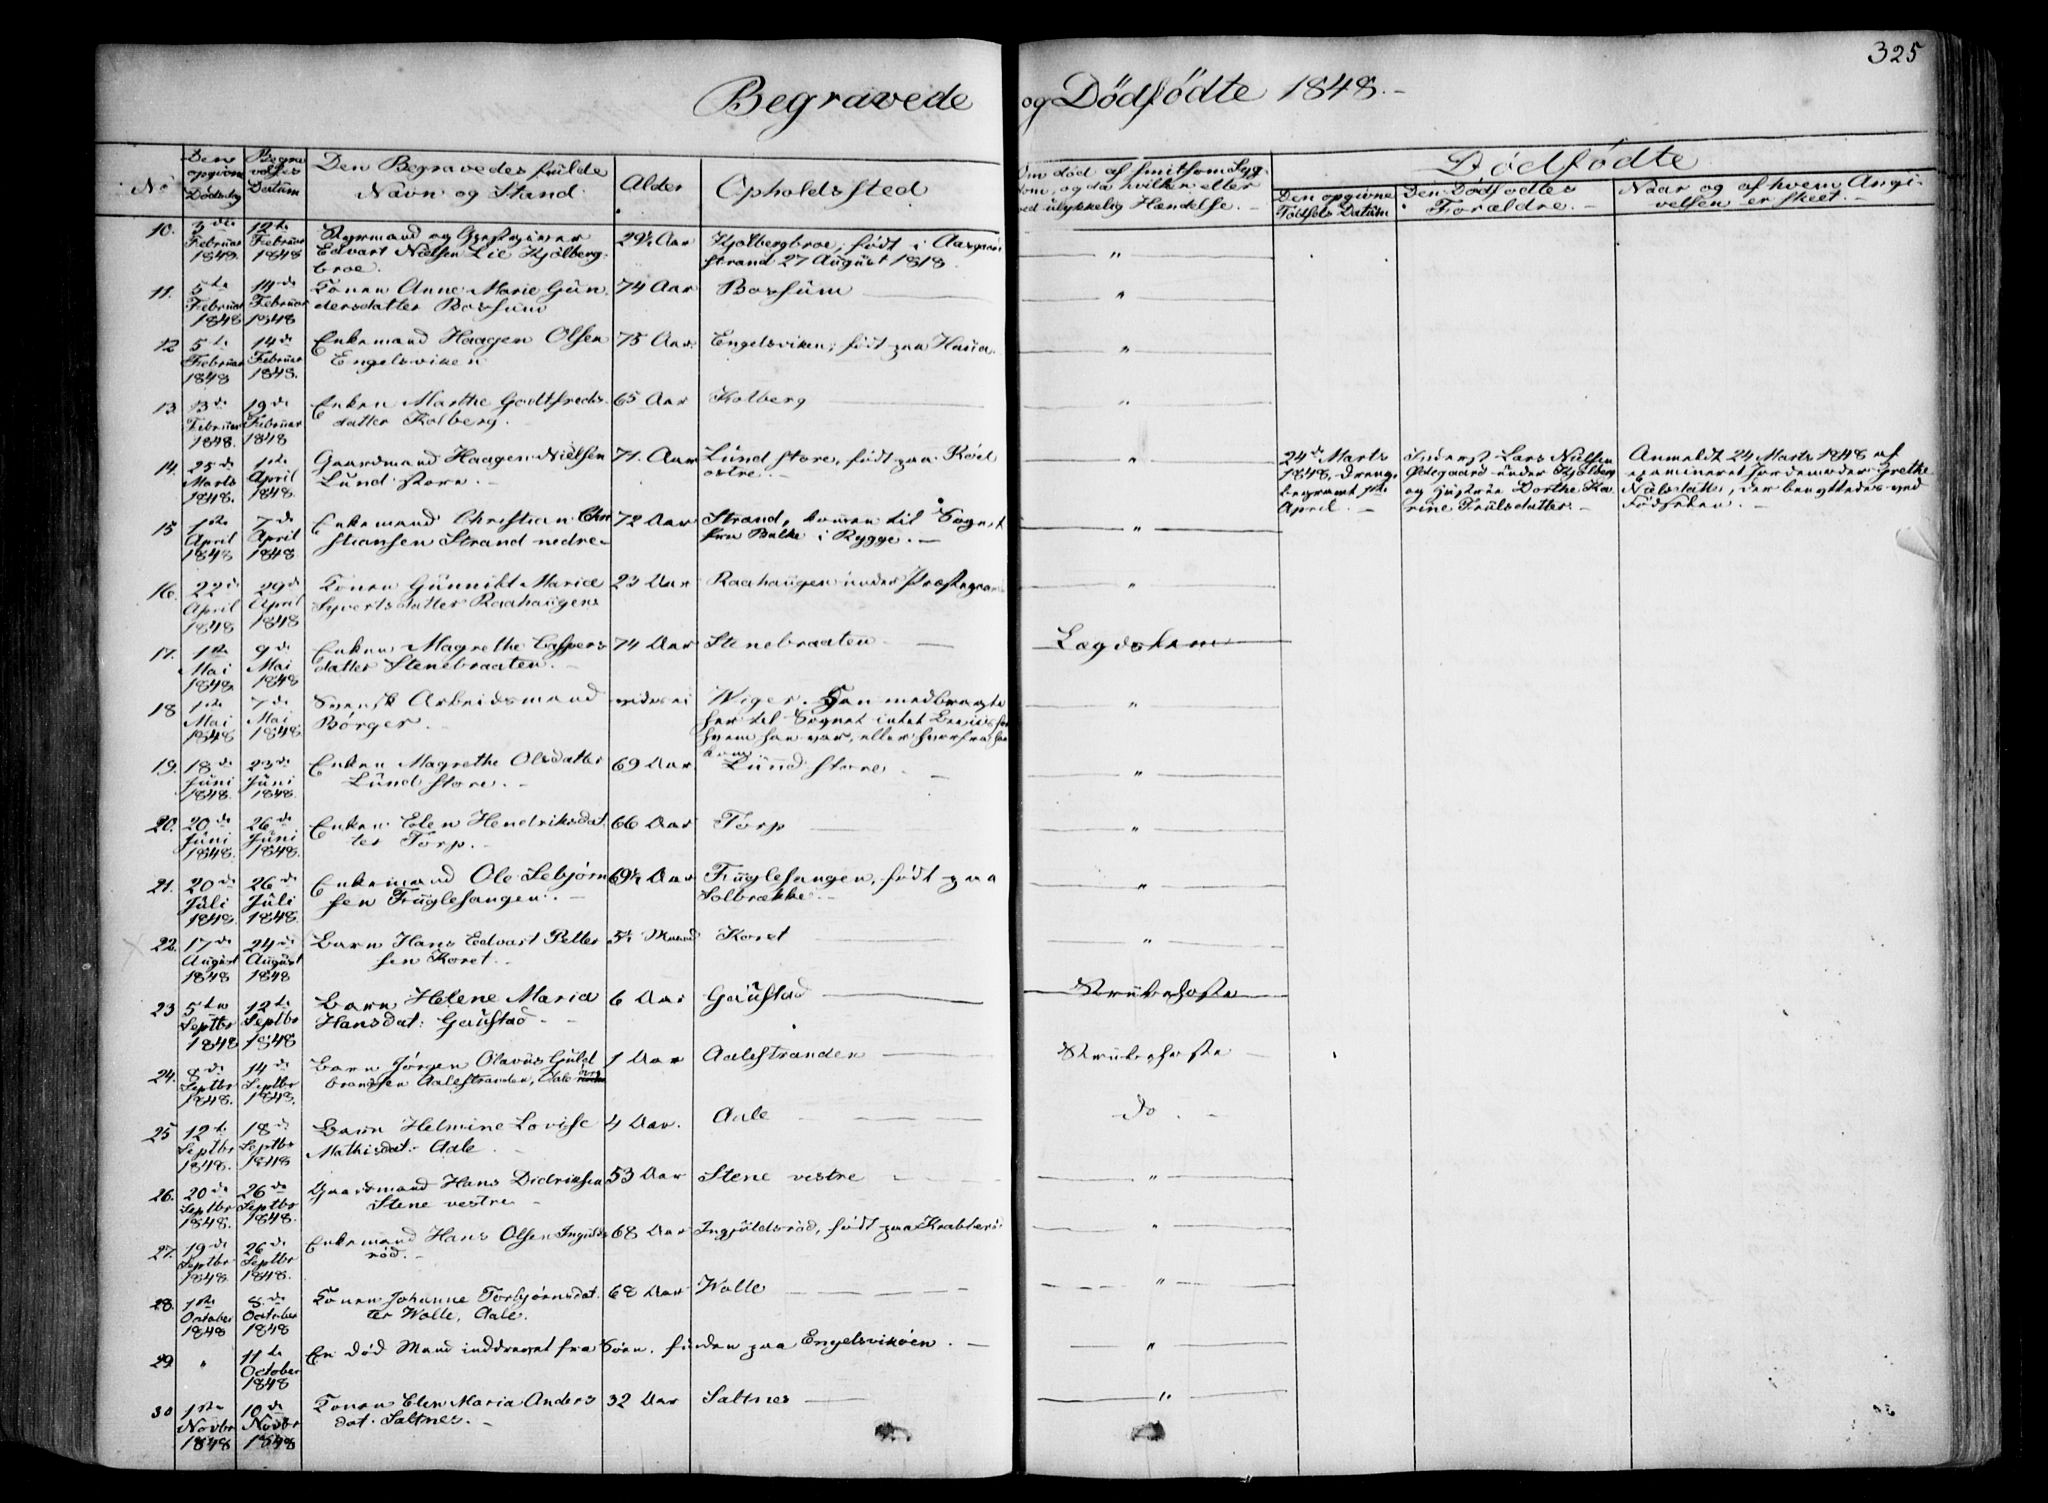 325
Begravede og Dödfödte 1848.-
No
Den opgivne Dødsdag
Begravelses Datum
Den Begravedes fulde Navn og Stand.
Alder
Opholdssted
Om död af smitsom Sygdom, og da hvilken eller ved ulykkelig Hændelse.-
Dödfödte
Den opgivne Födsels Datum
Den Dödfödtes Forældre.-
Naar og af hvem Angivelsen er skeet.-
10. 5de Februar 1848. 12te Februar 1848
Styrmand og
Edvart Nielsen Lie Kjölberg-
broe.
29½ Aar
Kjölbergbroe, födt i Aasgaard-
strand 27 August 1818.
"
11. 5te Februar 1848 14de Februar 1848
Konen Anne Marie Gun-
dersdatter Bossum
74 Aar
Bossum
"
12 5te Februar 1848 14de Februar 1848.
Enkemand Haagen Olsen
Engelsviken
75 Aar
Engelsviken, födt paa
"
13. 13de Februar 1848. 19de Februar 1848
Enken Marthe Godtfreds-
datter Kolberg.
65 Aar
Kolberg
"
14. 25de Marts 1848. 1ste April 1848.
Gaardmand Haagen Nielsen
Lund store.
71. Aar
Lund store, födt paa Röd
östre.-
"
24de Marts
1848, Dreng,
begravet 1ste
April.-
Inderst Lars Nielsen
Ödegaard under Kjölberg
og Hustrue Dorthe Ka-
rine Truls datter.-
Anmeldt 24 Marts 1848 af
examineret Jordemoder Grethe
Nielsdatter, der benyttedes ved
Födselen.-
15 1ste April 1848 7de April 1848.
Enkemand Christian Chri-
stiansen Strand nedre-
72 Aar
Strand, kommen til Sognet
fra Balke i Rygge.-
"
16. 22de April 1848 29de April 1848
Konen Gunnild Maria
Syvertsdatter Raahaugen
23 Aar
Raahaugen under Præstegaard
"
17. 1ste Mai 1848. 9de Mai 1848
Enken Magrethe Caspers
datter Stenebraaten.-
74 Aar
Stenebraaten
Lægdslem
18 1ste Mai 1848 7de Mai 1848.
Svensk Arbeidsmand
Börger.
vides ei
Wiger. Han medbragte
her til Sognet intet Beviis for
hvem han var, eller hvorfra han
kom.
"
19. 18de Juni 1848. 23de Juni 1848.
Enken Magrethe Olsdatter
Lund store.-
69 Aar
Lund store
"
20. 20de Juni 1848. 26de Juni 1848.
Enken Elen Hendriksdat
ter Torp.
66 Aar
Torp
"
21. 20de Juli 1848. 26de Juli 1848.
Enkemand Ole Sebjörn
sen Fuglesangen.-
69½ Aar
Fuglesangen, födt paa
Solbrække.-
"
22. 17de August 1848 24de August 1848
Barn Hans Edvart Petter
sen Koret.
Maaned
Koret
"
23 5te Septbr 1848 12te Septbr 1848
Barn Helene Maria
Hansdat: Gaustad.-
6 Aar
Gaustad
Strubehoste
24. 8de Septbr 1848. 14de Septbr 1848.
Barn Jörgen Olavus Guld
brandsen Aalestranden, Aale
1 Aar
Aalestranden
Strubehoste
25 12te Septbr 1848. 18de Septbr 1848
Barn Helmine Lovise
Mathisdat: Aale.
4 Aar.
Aale
do.-
26. 20de Septbr 1848. 26de Septbr 1848.
Gaardmand Hans Didriksen
Stene vestre
53 Aar
Stene vestre
"
27. 19de Septbr 1848. 26de Septbr 1848.
Enkemand Hans Olsen Ingulds
röd.-
68 Aar
Ingjöldsröd, födt paa Krabberöd
"
28. 1ste October 1848 8de October 1848
Konen Johanne Torbjörnsdat
ter Walle, Aale.
68 Aar
Walle
"
29. " 11te October 1848
En död Mand inddraget fra Söen, funden paa Engelsviköen.-
"
30 1ste Novbr 1848 10de Novbr 1848
Konen Elen Maria Anders
dat. Saltnes.-
32 Aar
Saltnes
"